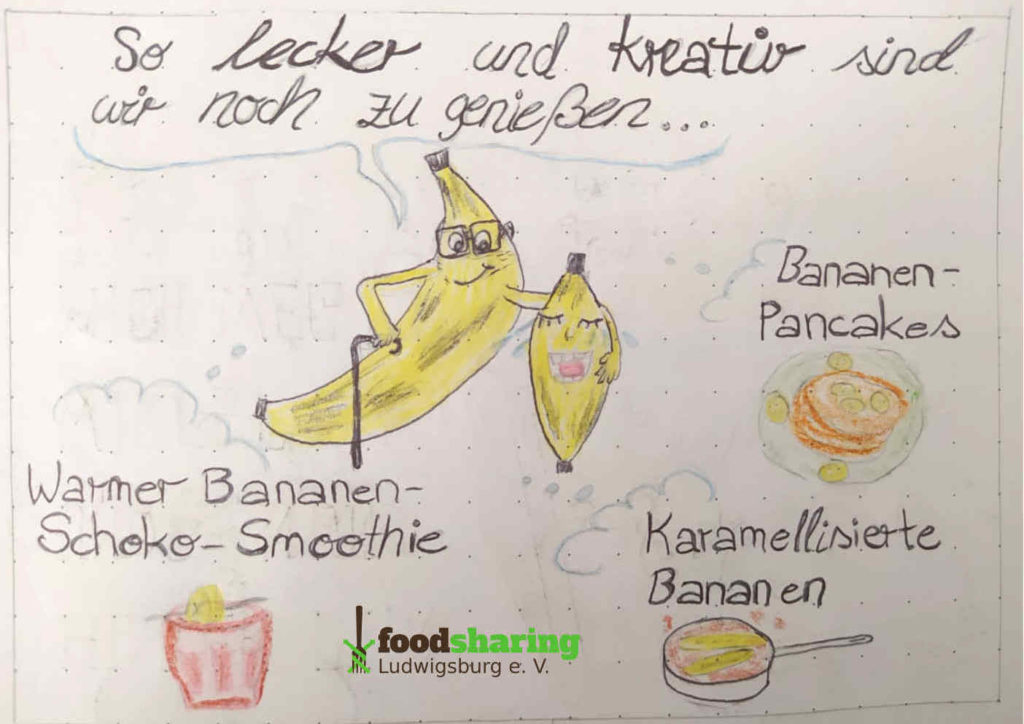 So lecker und kreativ sind
wir noch zu genießen...
Bananen-
Pancakes
Warmer Bananen-
Schoko-Smoothie
Karamellisierte
Bananen
foodsharing
Ludwigsburg e. V.